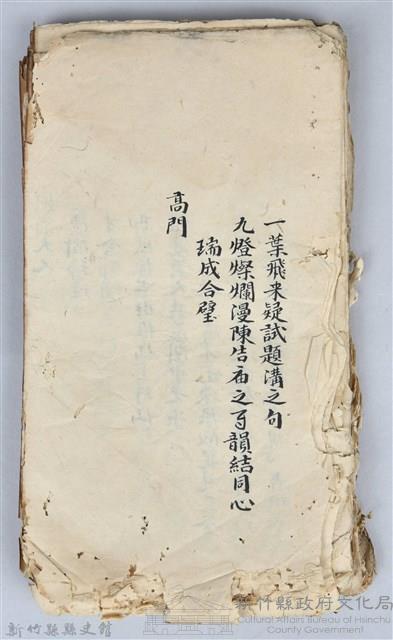 一葉飛来疑試題溝之句
九燈燦爛漫陳告庙之韻結同心
瑞成合璧
高門
新竹縣縣史館
新竹縣政府文化局
Cultural Affairs Bureau of Hsinchu
County Government